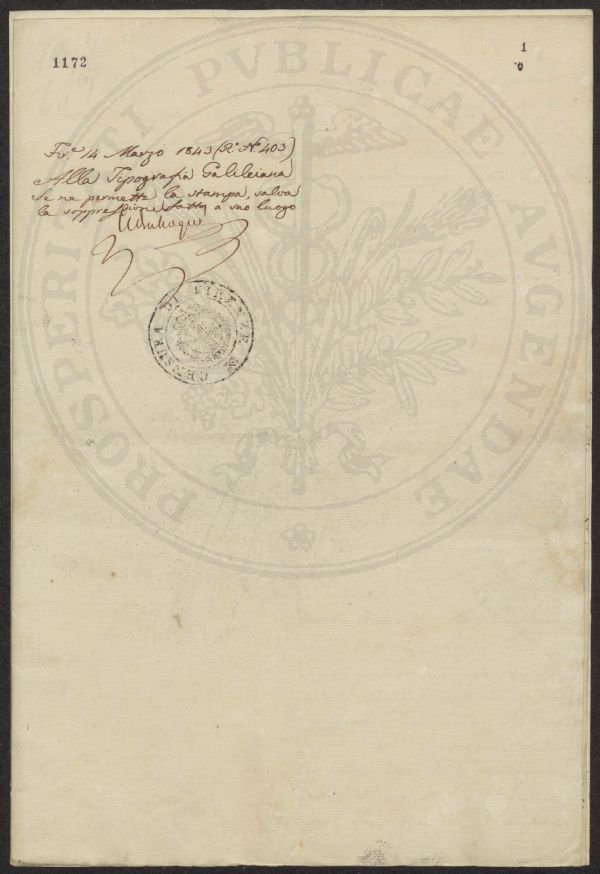 1172
1
Fe. 14 Marzo 1843 (R. Nº 403)
Alla Tipografia Galileiana
Se ne permette la stampa, salva
la soppressione fatta a suo luogo
CENSURA DI FIRENZE
PROSPERITATI PVBLICAE AVGENDAE